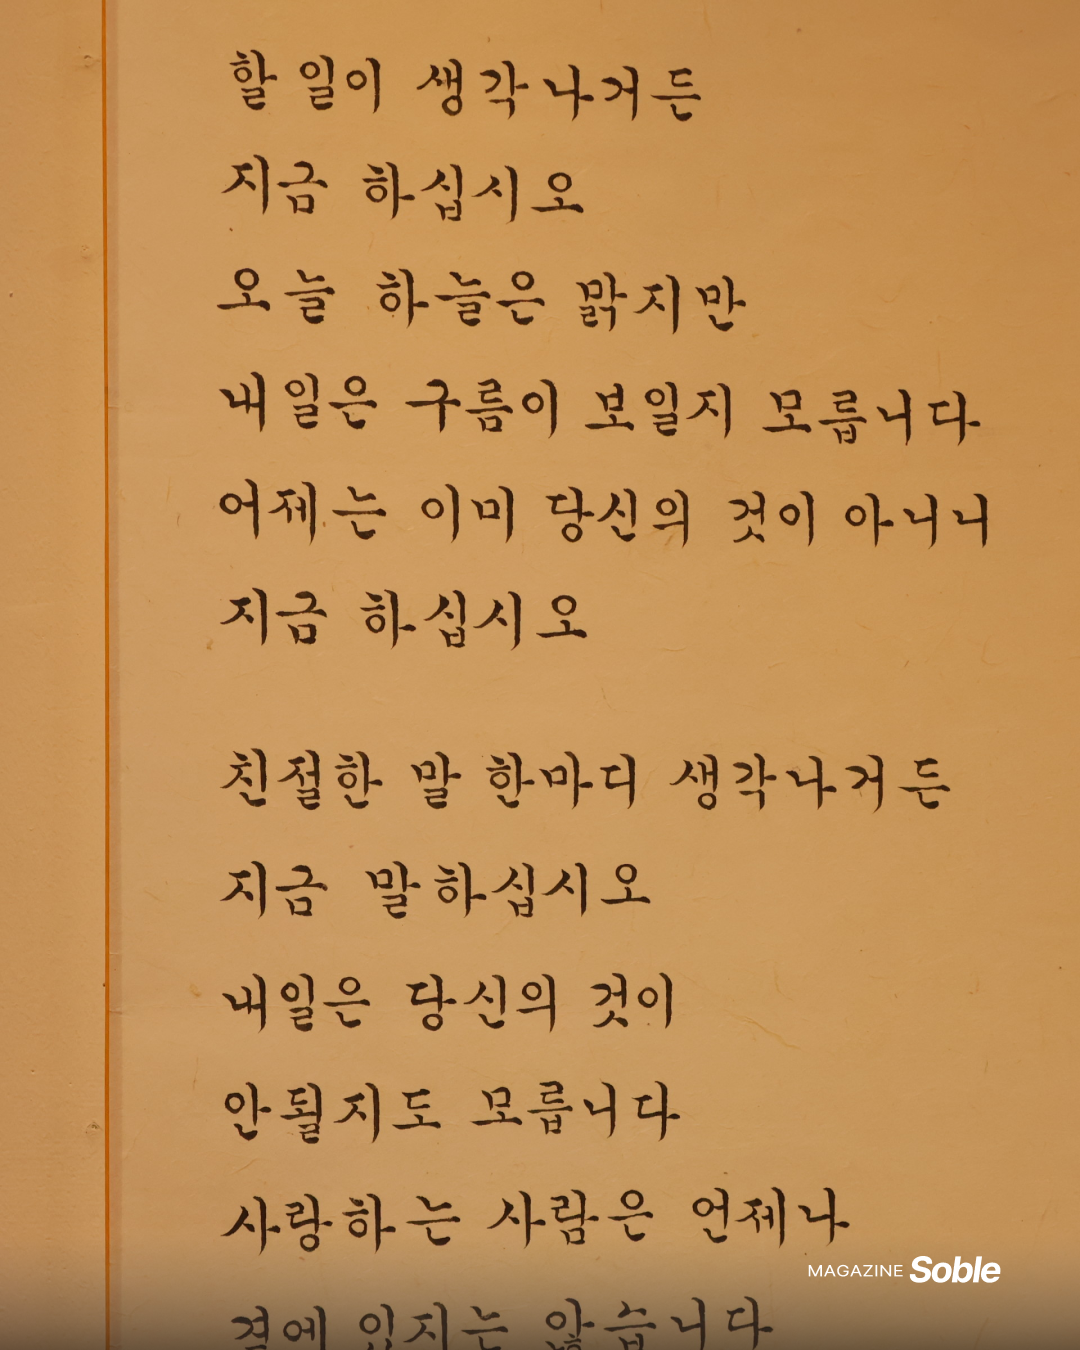 할 일이 생각나거든
지금 하십시오
오늘 하늘은 맑지만
내일은 구름이 보일지 모릅니다
어제는 이미 당신의 것이 아니니
지금 하십시오
친절한 말 한마디 생각나거든
지금 말하십시오
내일은 당신의 것이
안될지도 모릅니다
사랑하는 사람은 언제나
곁에 있지는 않습니다
MAGAZINE Soble